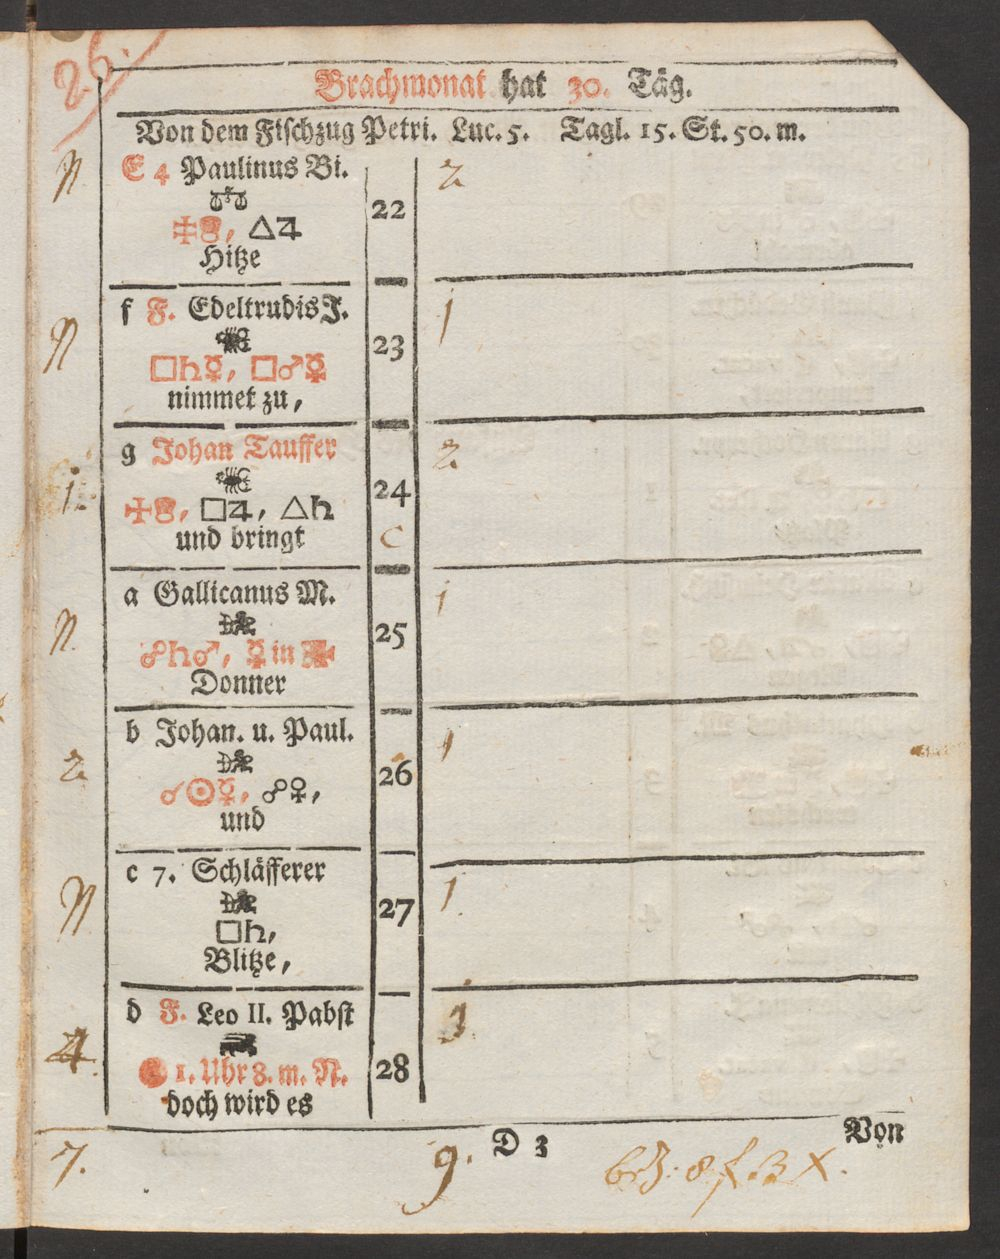 26.
Brachmonat hat 30. Täg.
Von dem Fischzug Petri. Luc. 5. Tagl. 15. St. 50. m.
N E 4 Paulinus Bi. 2
♎
22
△♃
Hitze
f F. Edeltrudis J. 1
♏
N 23
□♄☿, □♂☿
nimmet zu,
g Johan Tauffer 2
♏
1. 24
□♃, △♄
und bringt C
a Gallicanus M. 1
♐
N. 25
☍♄♂, ☿ in
Donner
b Johan. u. Paul. 1
♐
2. 26
☌☉☿, ☍♀,
und
c 7. Schläfferer
♐
N 27 1.
□♄,
Blitze,
d F. Leo II. Pabst 3.
4. 28
1. Uhr 3. m. N.
doch wird es
D 3 Von
7. 9.